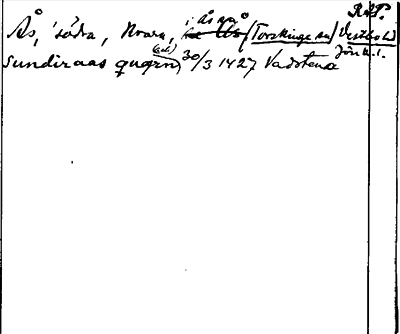 R.A.P.
Ås, södra, Norra, i Ås sn (Torskinge sn) Västbo hd
Jönk. l.
sundiraas quærn, 30/3 1427 Vadstena